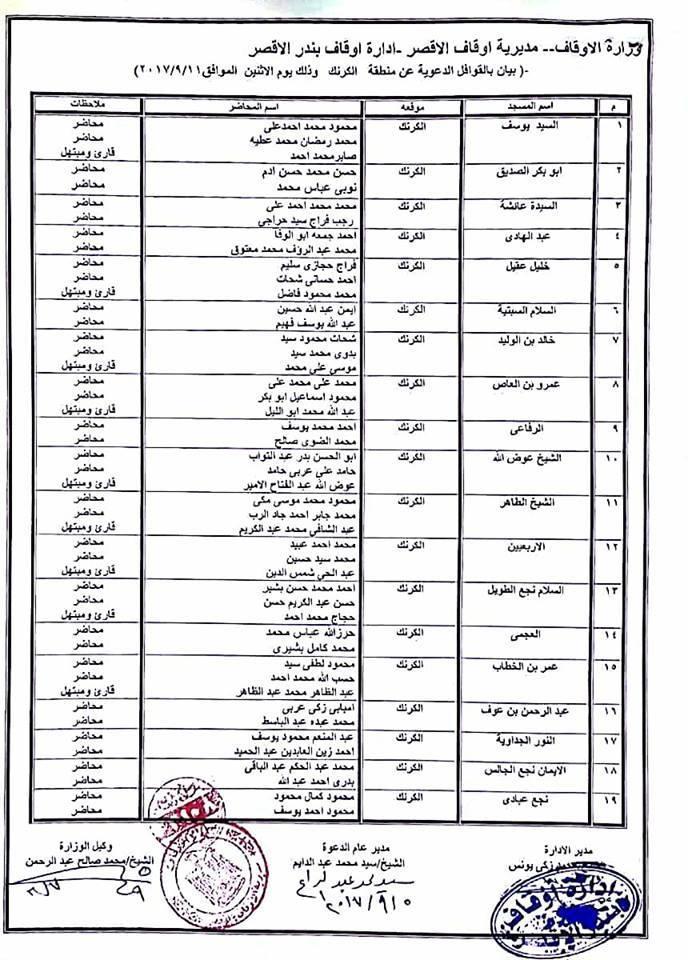 وزارة الاوقاف-- مديرية اوقاف الاقصر -ادارة اوقاف بندر الاقصر
-( بيان بالقوافل الدعوية عن منطقة الكرنك وذلك يوم الاثنين الموافق ٢٠١٧/٩/١١)
م اسم المسجد موقعه اسم المحاضر ملاحظات
١ السيد يوسف الكرنك محمود محمد احمدعلى محاضر
محمد رمضان محمد عطيه محاضر
صابرمحمد احمد قارئ ومبتهل
٢ ابو بكر الصديق الكرنك حسن محمد حسن ادم محاضر
نوبى عباس محمد محاضر
٣ السيدة عائشة الكرنك محمد محمد احمد على محاضر
رجب فراج سيد حراجى محاضر
٤ عبد الهادى الكرنك احمد جمعه ابو الوفا محاضر
محمد عبد الرؤف محمد معتوق محاضر
٥ خليل عقيل الكرنك فراج حجازى سليم محاضر
احمد حسانى شحات محاضر
محمد محمود فاضل قارئ ومبتهل
٦ السلام السبتية الكرنك ايمن عبد الله حسين محاضر
عبد الله يوسف فهيم محاضر
٧ خالد بن الوليد الكرنك شحات محمود سيد محاضر
بدوى محمد سيد محاضر
موسى على محمد قارئ ومبتهل
٨ عمرو بن العاص الكرنك محمد على محمد على محاضر
محمود اسماعيل ابو بكر محاضر
عبد الله محمد ابو الليل قارئ ومبتهل
٩ الرفاعى الكرنك احمد محمد يوسف محاضر
محمد الضوى صالح محاضر
١٠ الشيخ عوض الله الكرنك ابو الحسن بدر عبد التواب محاضر
حامد على عربى حامد محاضر
عوض الله عبد الفتاح الامير قارئ ومبتهل
١١ الشيخ الطاهر الكرنك محمود محمد موسى مكى محاضر
محمد جابر احمد جاد الرب محاضر
عبد الشافى محمد عبد الكريم قارئ ومبتهل
١٢ الاربعين الكرنك محمد احمد عبيد محاضر
محمد سيد حسين محاضر
عبد الحي شمس الدين قارئ ومبتهل
١٣ السلام نجع الطويل الكرنك احمد محمد حسن بشير محاضر
حسن عبد الكريم حسن محاضر
حجاج محمد احمد قارئ ومبتهل
١٤ العجمى الكرنك حرزالله عباس محمد محاضر
محمد كامل بشيرى محاضر
١٥ عمر بن الخطاب الكرنك محمود لطفى سيد محاضر
حسب الله محمد احمد محاضر
عبد الظاهر محمد عبد الظاهر قارئ ومبتهل
١٦ عبد الرحمن بن عوف الكرنك امبابى زكى عربى محاضر
محمد عبده عبد الباسط محاضر
١٧ النور الجداوية الكرنك عبد المنعم محمود يوسف محاضر
احمد زين العابدين عبد الحميد محاضر
١٨ الايمان نجع الجالس الكرنك محمد عبد الحكم عبد الباقى محاضر
بدرى احمد عبد الله محاضر
١٩ نجع عبادى الكرنك محمود كمال محمود محاضر
محمود احمد يوسف محاضر
مدير الادارة مدير عام الدعوة وكيل الوزارة
زكى يونس الشيخ/سيد محمد عبد الدايم الشيخ/محمد صالح عبد الرحمن
٢٠١٧/٩/٥
ادارة اوقاف